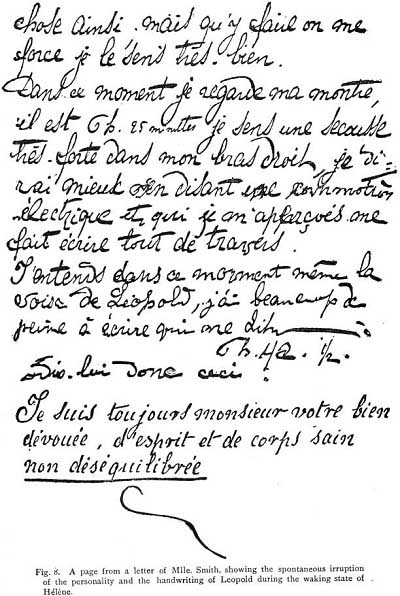 chose ainsi. mais qu'y faire on me
force je le sens très. bien.
Dans ce moment je regarde ma montre,
il est 9h. 25 minutes je sens une secousse
très. forte dans mon bras droit, je di-
rai mieux en disant une commotion
électrique et, qui je m'apperçois me
fait écrire tout de travers.
J'entends dans ce moment même la
voix de Léopold, j'ai beaucoup de
peine à écrire qui me dit:
9h. 42. ½.
Dis. lui donc ceci:
Je suis toujours monsieur votre bien
dévouée, d'esprit et de corps sain
non déséquilibrée
Fig. 8. A page from a letter of Mlle. Smith, showing the spontaneous irruption
of the personality and the handwriting of Leopold during the waking state of
Hélène.